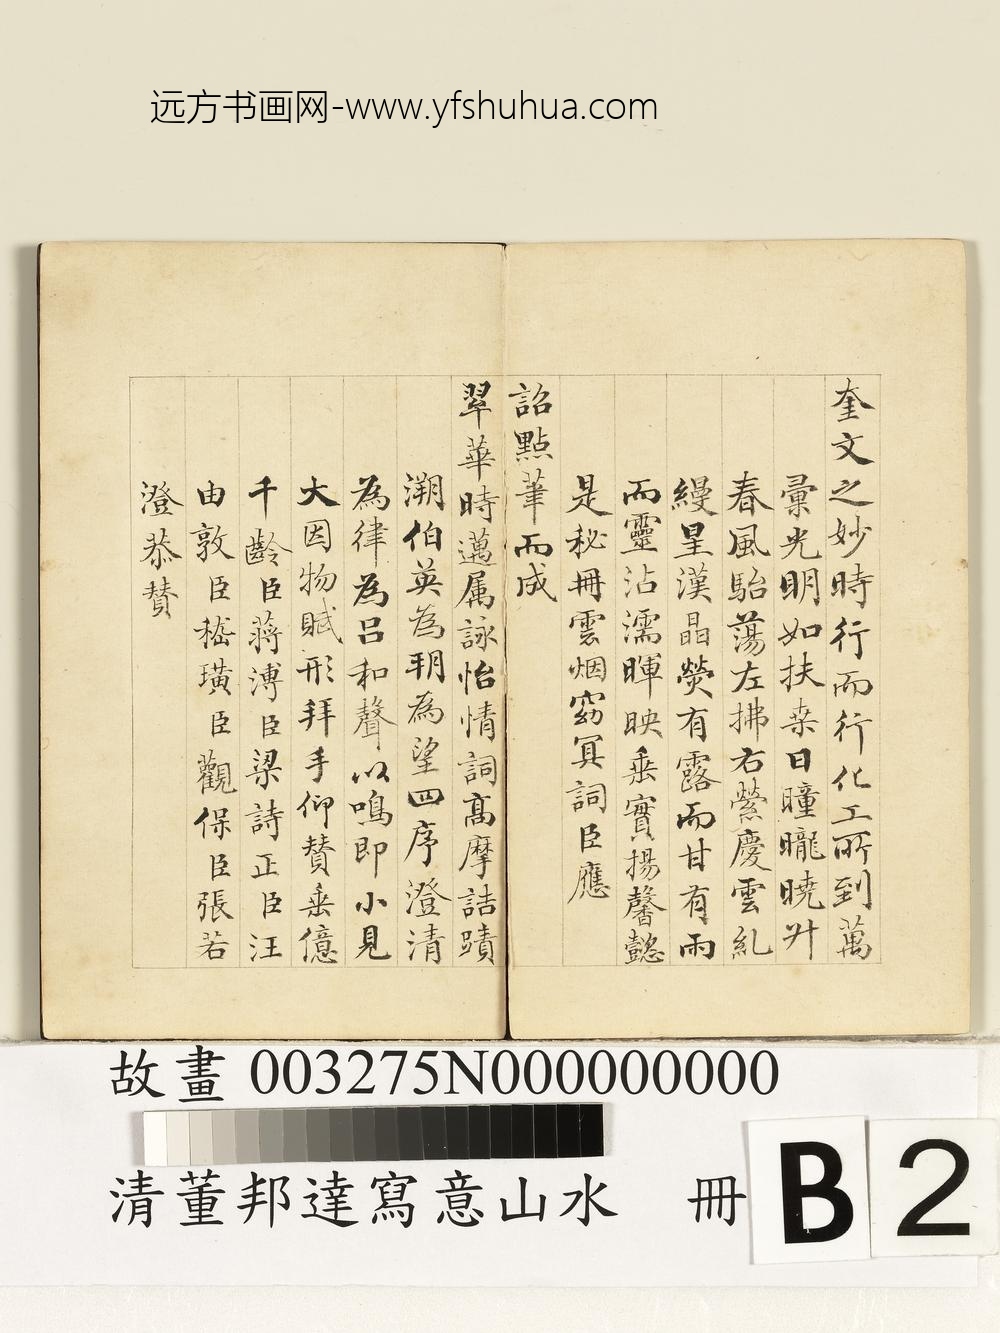 远方书画网-www.yfshuhua.com
奎文之妙時行而行化工所到萬
彙光明如扶桒日曈曨曉升
春風駘蕩左拂右縈慶雲糺
縵星漢晶熒有露而甘有雨
而靈沾濡暉映垂實揚馨懿
是秘冊雲烟窈冥詞臣應
詔點筆而成
翠華時邁属詠怡情詞髙摩詰蹟
溯伯英為朙為望四序澄清
為律為呂和聲以鳴即小見
大因物賦形拜手仰贊垂億
千齡臣蔣溥臣梁詩正臣汪
由敦臣嵇璜臣觀保臣張若
澄恭贊
故畫 003275N000000000
清董邦達寫意山水 冊
B 2